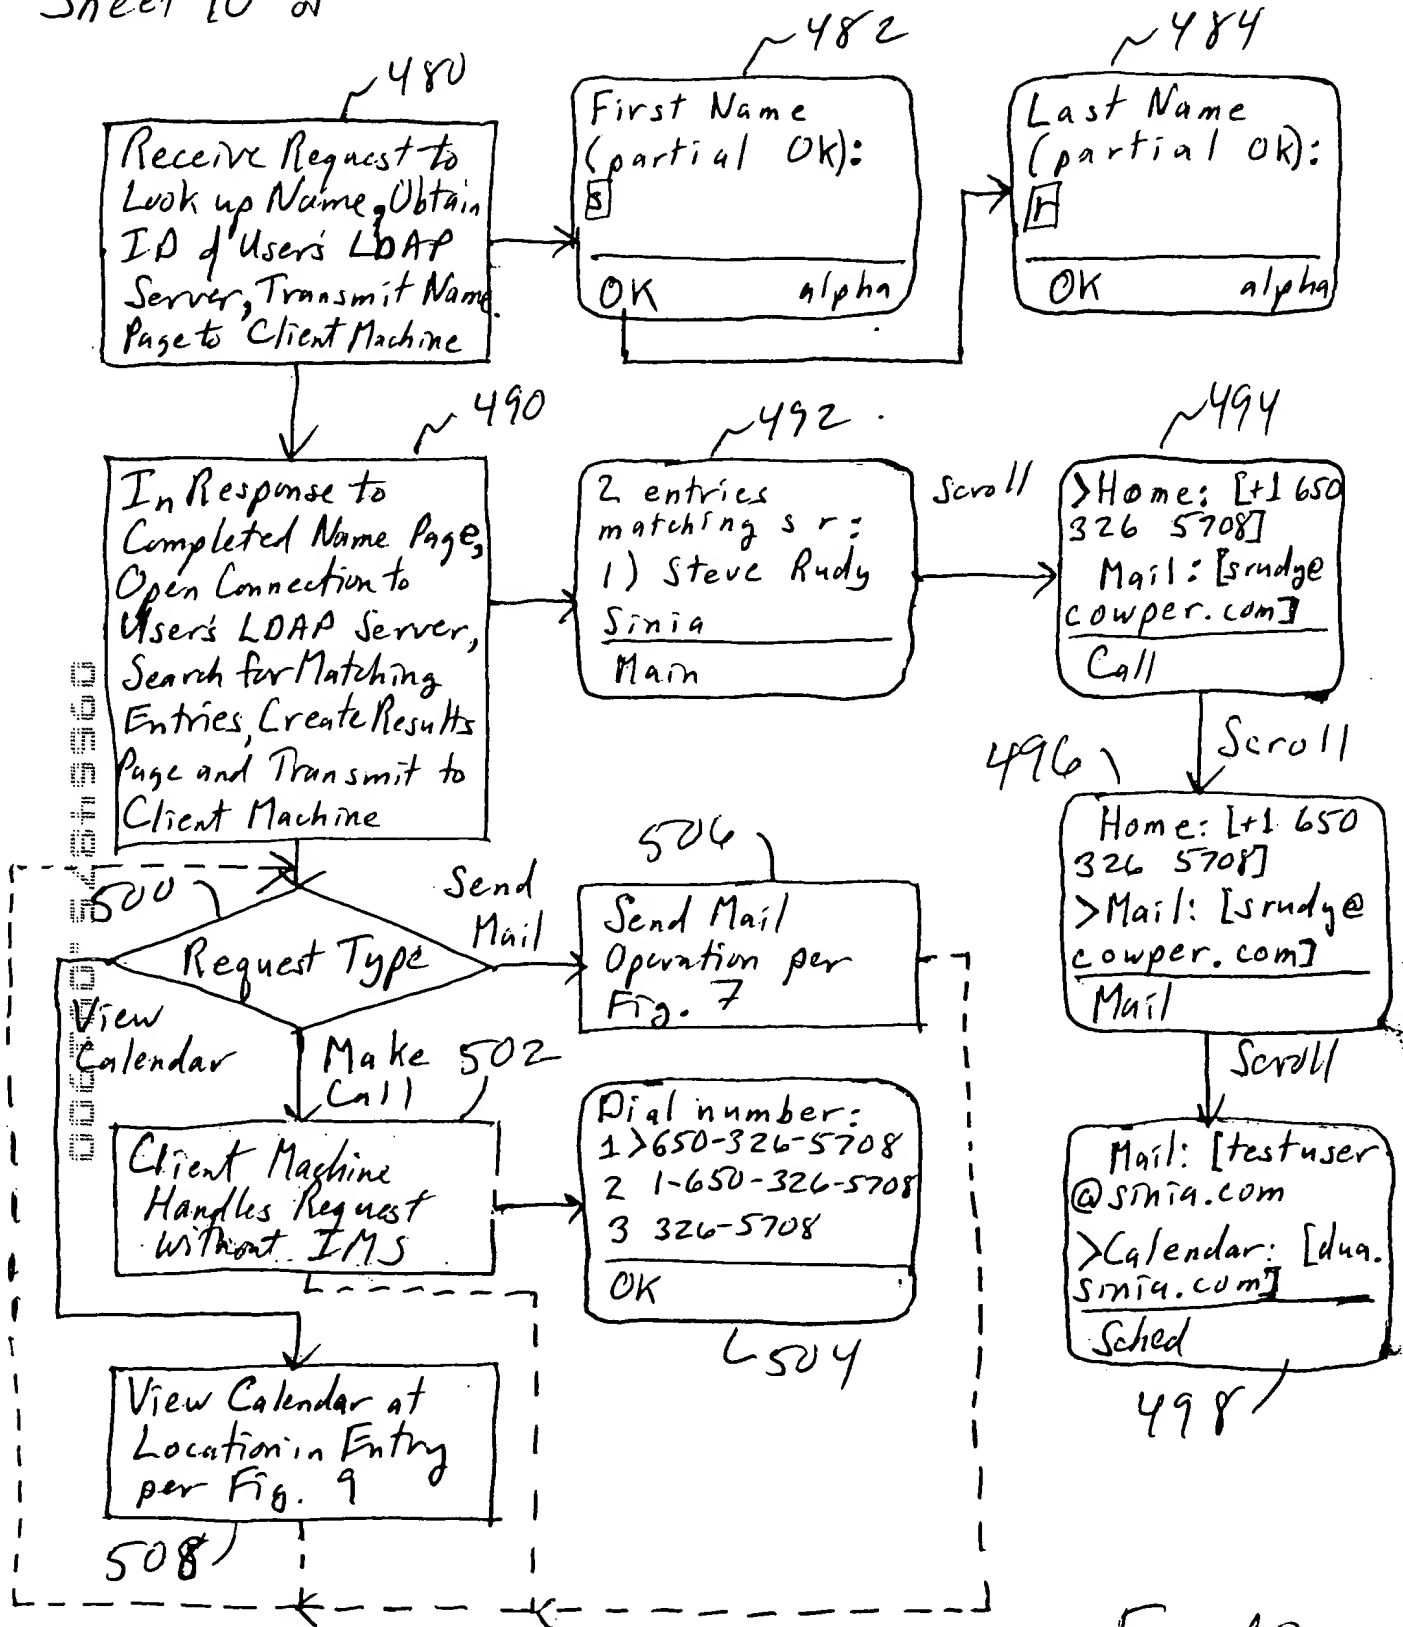 Sheet 10 of
480
Receive Request to
Look up Name, Obtain
ID of User's LDAP
Server, Transmit Name
Page to Client Machine
482
First Name
(partial Ok):
s
OK alpha
484
Last Name
(partial Ok):
r
OK alpha
490
In Response to
Completed Name Page,
Open Connection to
User's LDAP Server,
Search for Matching
Entries, Create Results
Page and Transmit to
Client Machine
492
2 entries
matching s r:
1) Steve Rudy
Sinia
Main
Scroll
494
>Home: [+1 650
326 5708]
Mail: [srudy@
cowper.com]
Call
Scroll
496
Home: [+1 650
326 5708]
>Mail: [srudy@
cowper.com]
Mail
Scroll
Mail: [testuser
@sinia.com
>Calendar: [dua.
sinia.com]
Sched
498
500
Request Type
Send
Mail
506
Send Mail
Operation per
Fig. 7
View
Calendar
Make
Call
502
Client Machine
Handles Request
without IMS
Dial number:
1>650-326-5708
2 1-650-326-5708
3 326-5708
OK
504
View Calendar at
Location in Entry
per Fig. 9
508